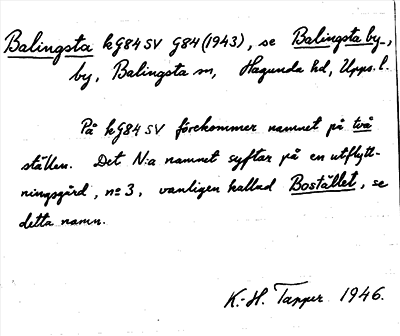 Balingsta kG84SV G84(1943), se Balingsta by,
by, Balingsta sn, Hagunda hd, Upps. l.
På kG84SV förekommer namnet på två
ställen. Det N:a namnet syftar på en utflytt-
ningsgård, nº 3, vanligen kallad Bostället, se
detta namn.
K.-H. Tapper 1946.